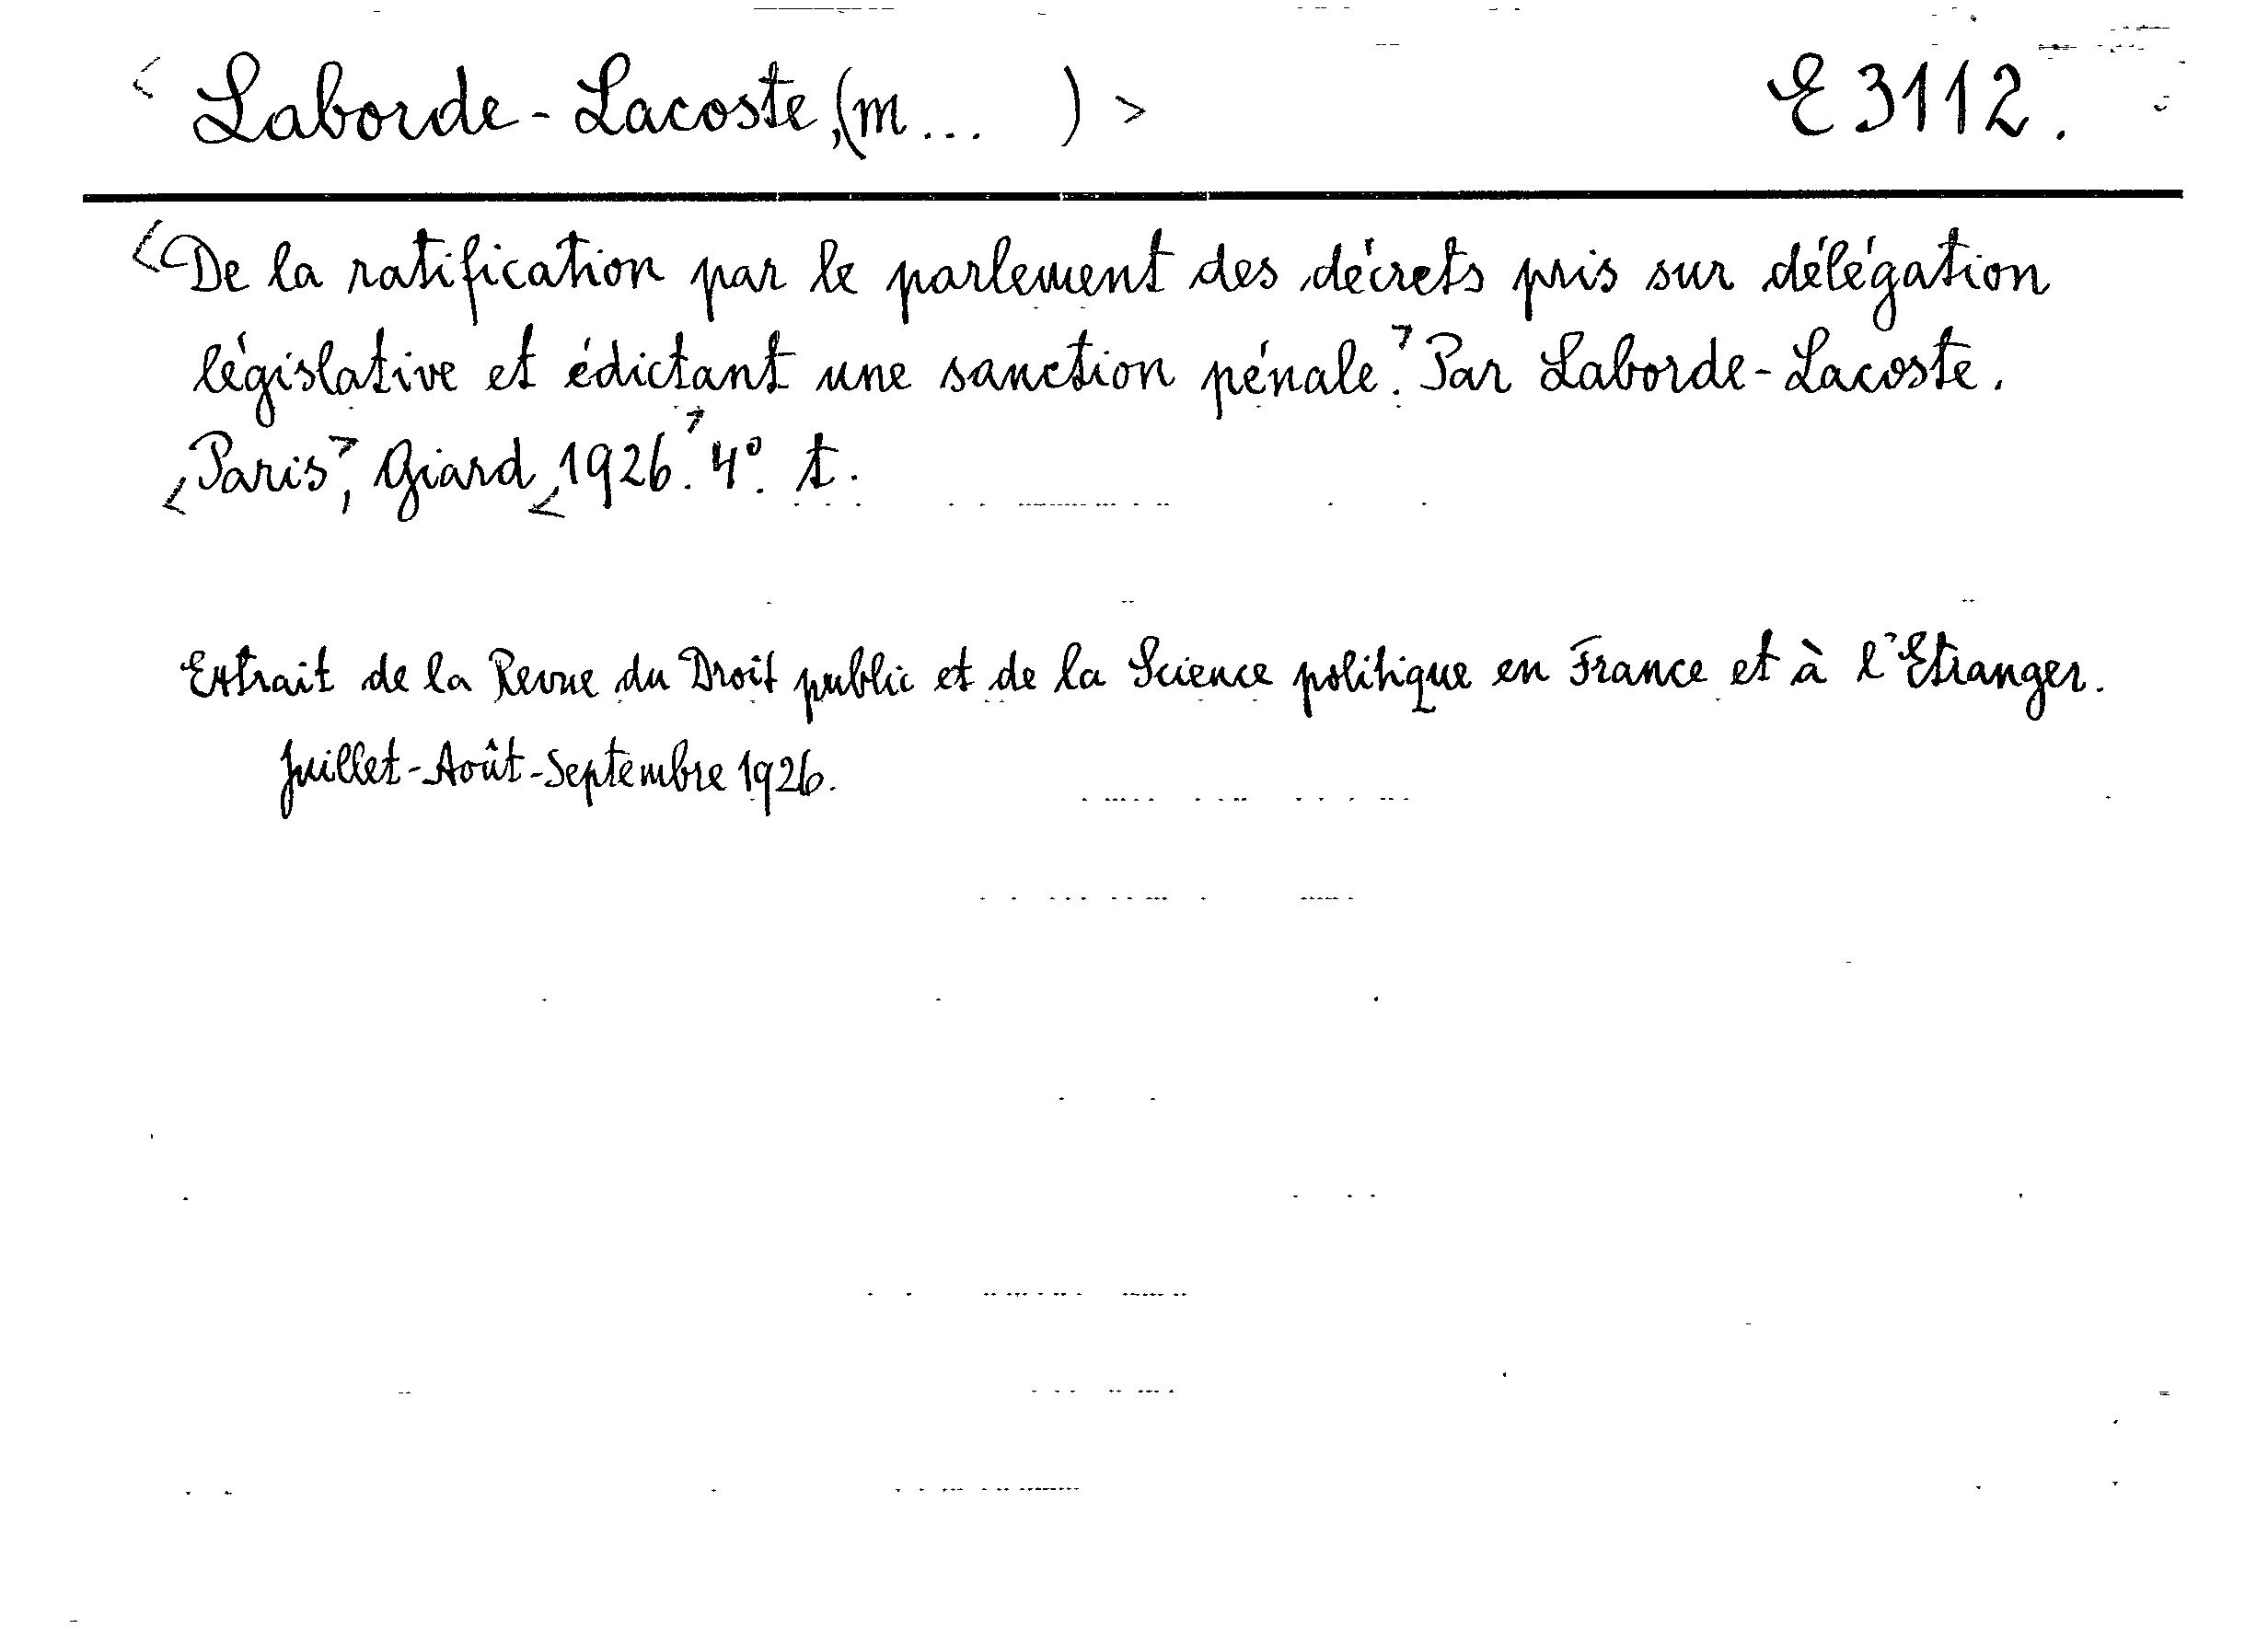 < Laborde-Lacoste, (m... ) > E 3112.
<De la ratification par le parlement des décrets pris sur délégation
législative et édictant une sanction pénale.> Par Laborde-Lacoste.
<Paris>, Giard, <1926.> 4°. t.
Extrait de la Revue du Droit public et de la Science politique en France et à l'Etranger.
Juillet-Août-Septembre 1926.